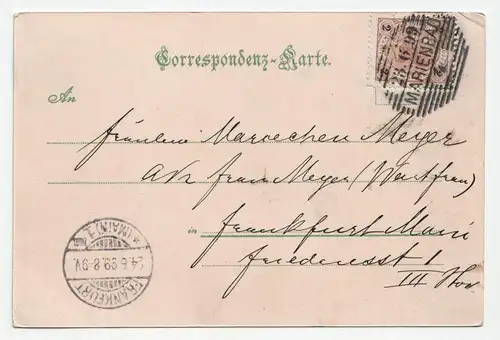 Correspondenz-Karte.
An
Fräulein Mariechen Meyer
Frau Meyer
in Frankfurt Main
Friedensst 1
III Stock
MARIENBAD
2
FRANKFURT (MAIN) 1
24.6.99.8-9V.